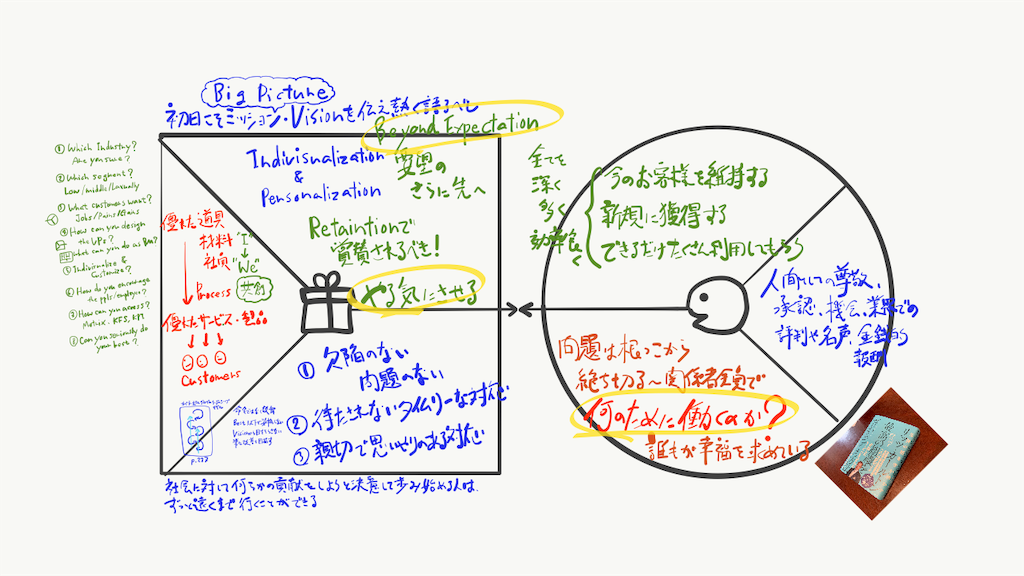 Big Picture
初日こそミッション・Visionを伝え熱く語るべし
Beyond Expectation
要望の
さらに先へ
Indivisualization
&
Personalization
Retaintionで
賞賛されるべき!
やる気にさせる
① Which Industry?
Are you sure?
② Which segment?
Low/middle/Luxually
③ What customers want?
Jobs/Pains/Gains
④ How can you design
the UPs?
What can you do as Bm?
① Indivisualize &
Customize?
② How do you encourage
the ppls/employees?
③ How can you assess?
Metrix・KFS, KPI
③ Can you seriously do
your best?
優れた道具
材料
社員
"I"
"We"
共創
Process
優れたサービス・製品
Customers
P.222
① 欠陥のない
問題のない
② 待たされないタイムリーな対応
③ 親切で思いやりのある対応
社会に対して何らかの貢献をしようと決意して歩み始める人は、
ずっと遠くまで行くことができる
全てを
深く
多く
効率良く
今のお客様を維持する
新規に獲得する
できるだけたくさん利用してもらう
人間としての尊敬、
承認、機会、業界での
評判や名声、金銭的
報酬
問題は根っこから
絶ち切る〜関係者全員で
何のために働くのか?
誰もが幸福を求めている